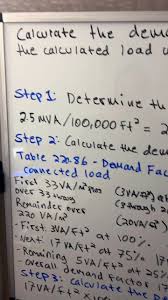 Calculate the dem
the calculated load u
Step 1: Determine th
2.5 MVA/100,000 ft² = 2
Step 2: Calculate the dem
Table 220.86 - Demand Fac
connected load
First 33VA/m² (3VA/ft²) at
over 33 through
Remainder over (20VA/ft²)
220 VA/m²
- First 3VA/ft² at 100%
- Next 17VA/ft² at 75%
- Remaining 5VA/ft² at 25
overall demand factor
Step 3: Calculate the
17VA/ft² x 100